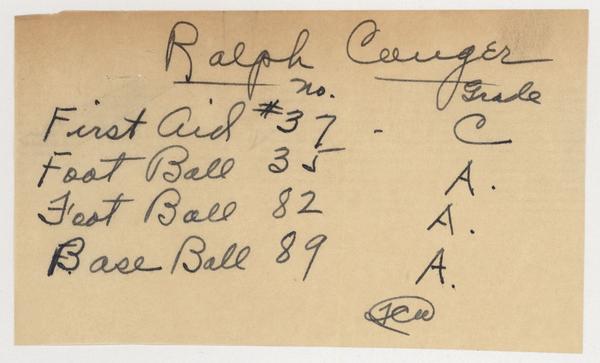 Ralph Conger
no. Grade
First Aid #37 - C
Foot Ball 35 A.
Foot Ball 82 A.
Base Ball 89 A.